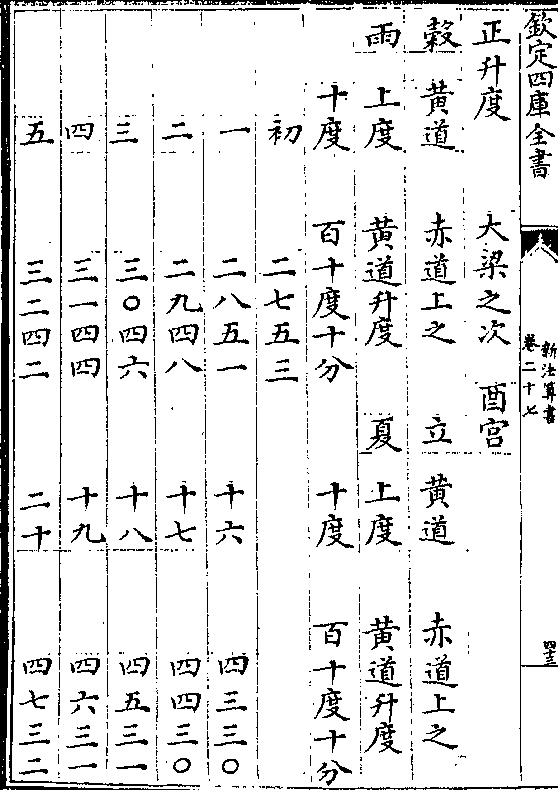 欽定四庫全書
新法算書
卷二十七
四十三
正升度 大梁之次 酉宮
穀 黄道 赤道上之 立 黄道 赤道上之
雨 上度 黄道升度 夏 上度 黄道升度
十度 百十度十分 十度 百十度十分
初 二七五三
一 二八五一 十六 四三三〇
二 二九四八 十七 四四三〇
三 三〇四六 十八 四五三一
四 三一四四 十九 四六三一
五 三二四二 二十 四七三二